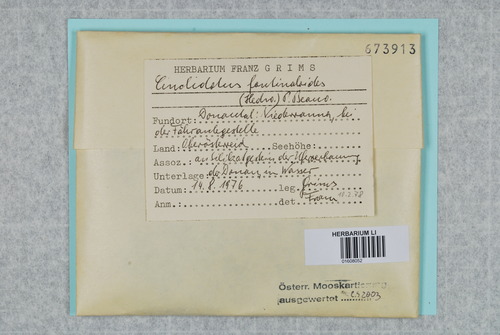 673913
HERBARIUM FRANZ GRIMS
Cinclidotus fontinaloides
(Hedw.) P. Beauv.
Fundort: Donautal: Niederranna, bei
der Fähranlegestelle
Land: Oberösterreich Seehöhe:
Assoz.: an Silikatgestein der Uferverbauung
Unterlage: der Donau im Wasser
Datum: 14.8.1976 leg. Grims
Anm.: det.
HERBARIUM LI
01608052
Österr. Mooskartierung
ausgewertet